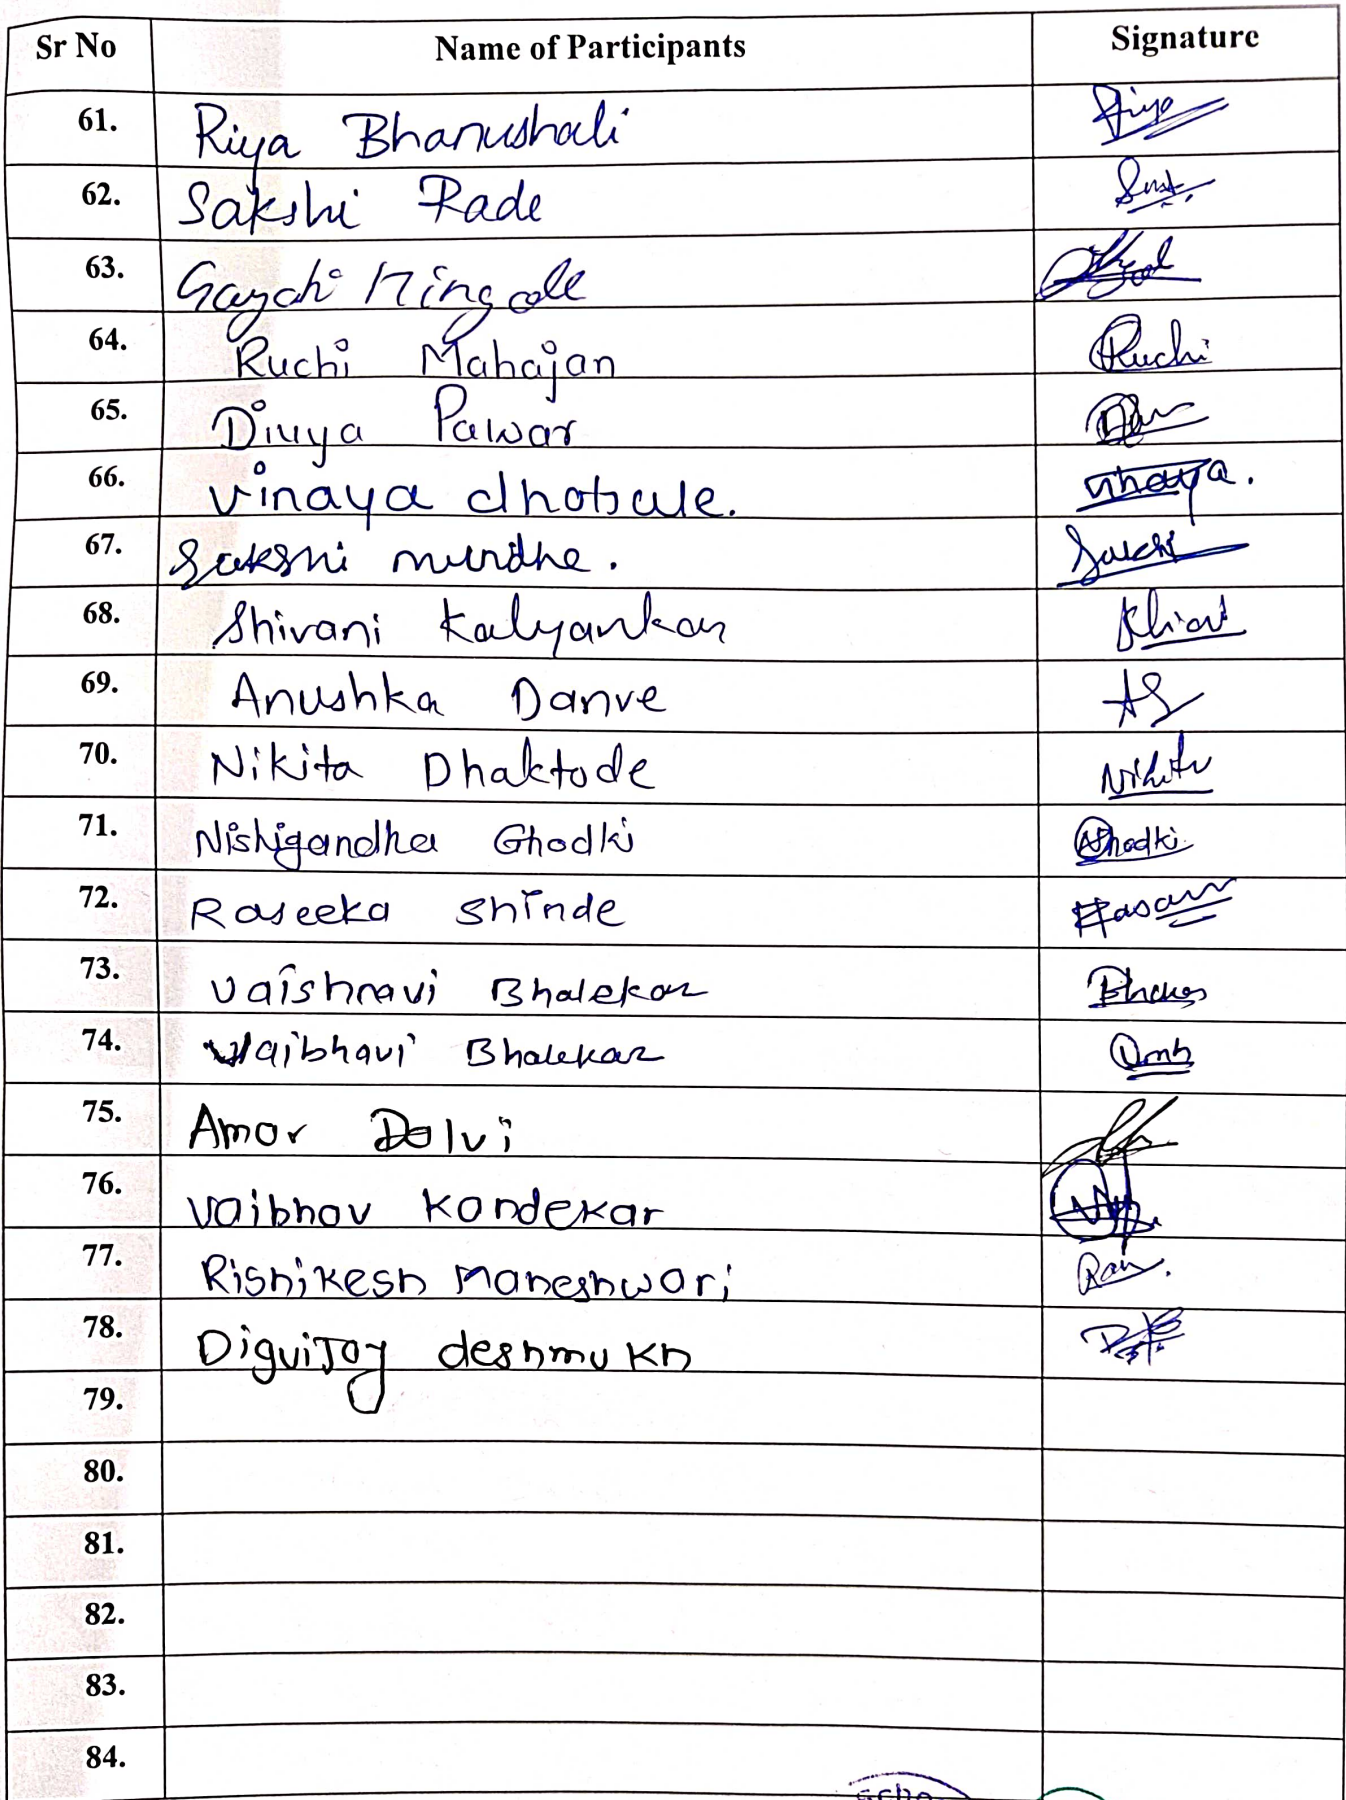 Sr No Name of Participants Signature
61. Riya Bhanushali Riya
62. Sakshi Rade
63. Gayatri Hingole
64. Ruchi Mahajan Ruchi
65. Divya Pawar
66. Vinaya dhobale. Vinaya.
67. Sakshi mundhe. Sakshi
68. Shivani Kalyankar
69. Anushka Danve AS
70. Nikita Dhaktode Nikita
71. Nishigandha Ghodki Ghodki
72. Raseeka Shinde
73. Vaishnavi Bhalekar
74. Vaibhavi Bhalekar
75. Amar Dalvi
76. Vaibhav Kandekar
77. Rishikesh Maheshwari
78. Digvijay deshmukh
79.
80.
81.
82.
83.
84.